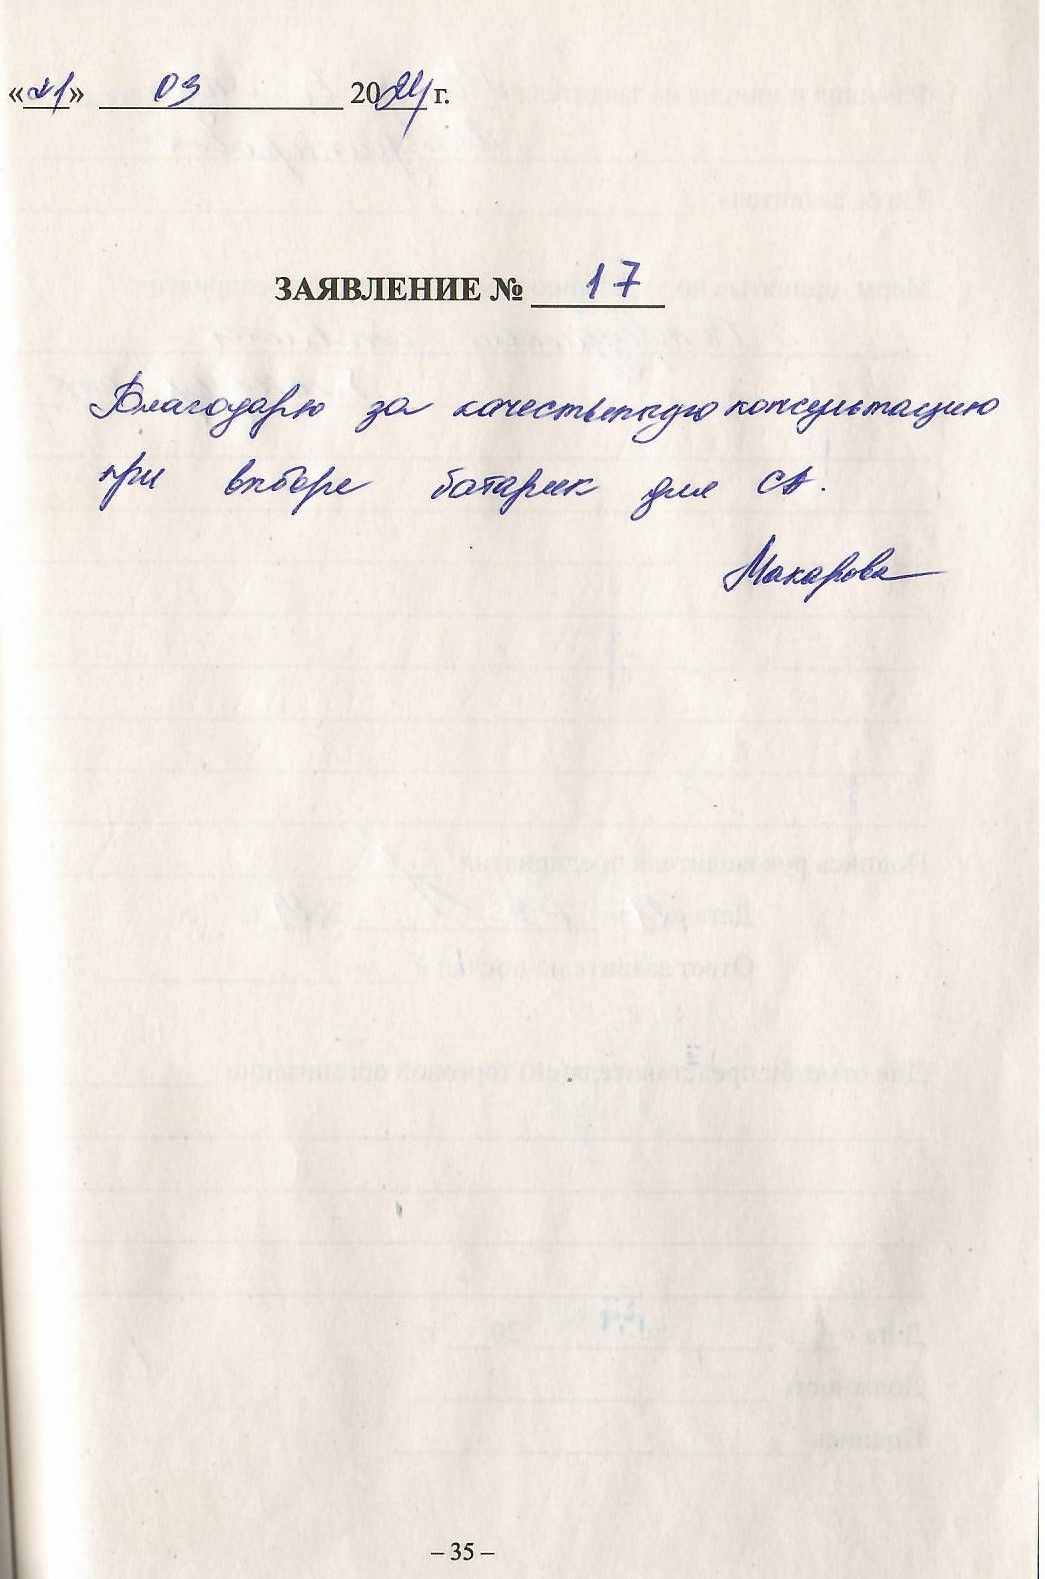 «21» 03 2024 г.
ЗАЯВЛЕНИЕ № 17
Благодарю за качественную консультацию
при выборе батареек для СА.
Макарова
– 35 –